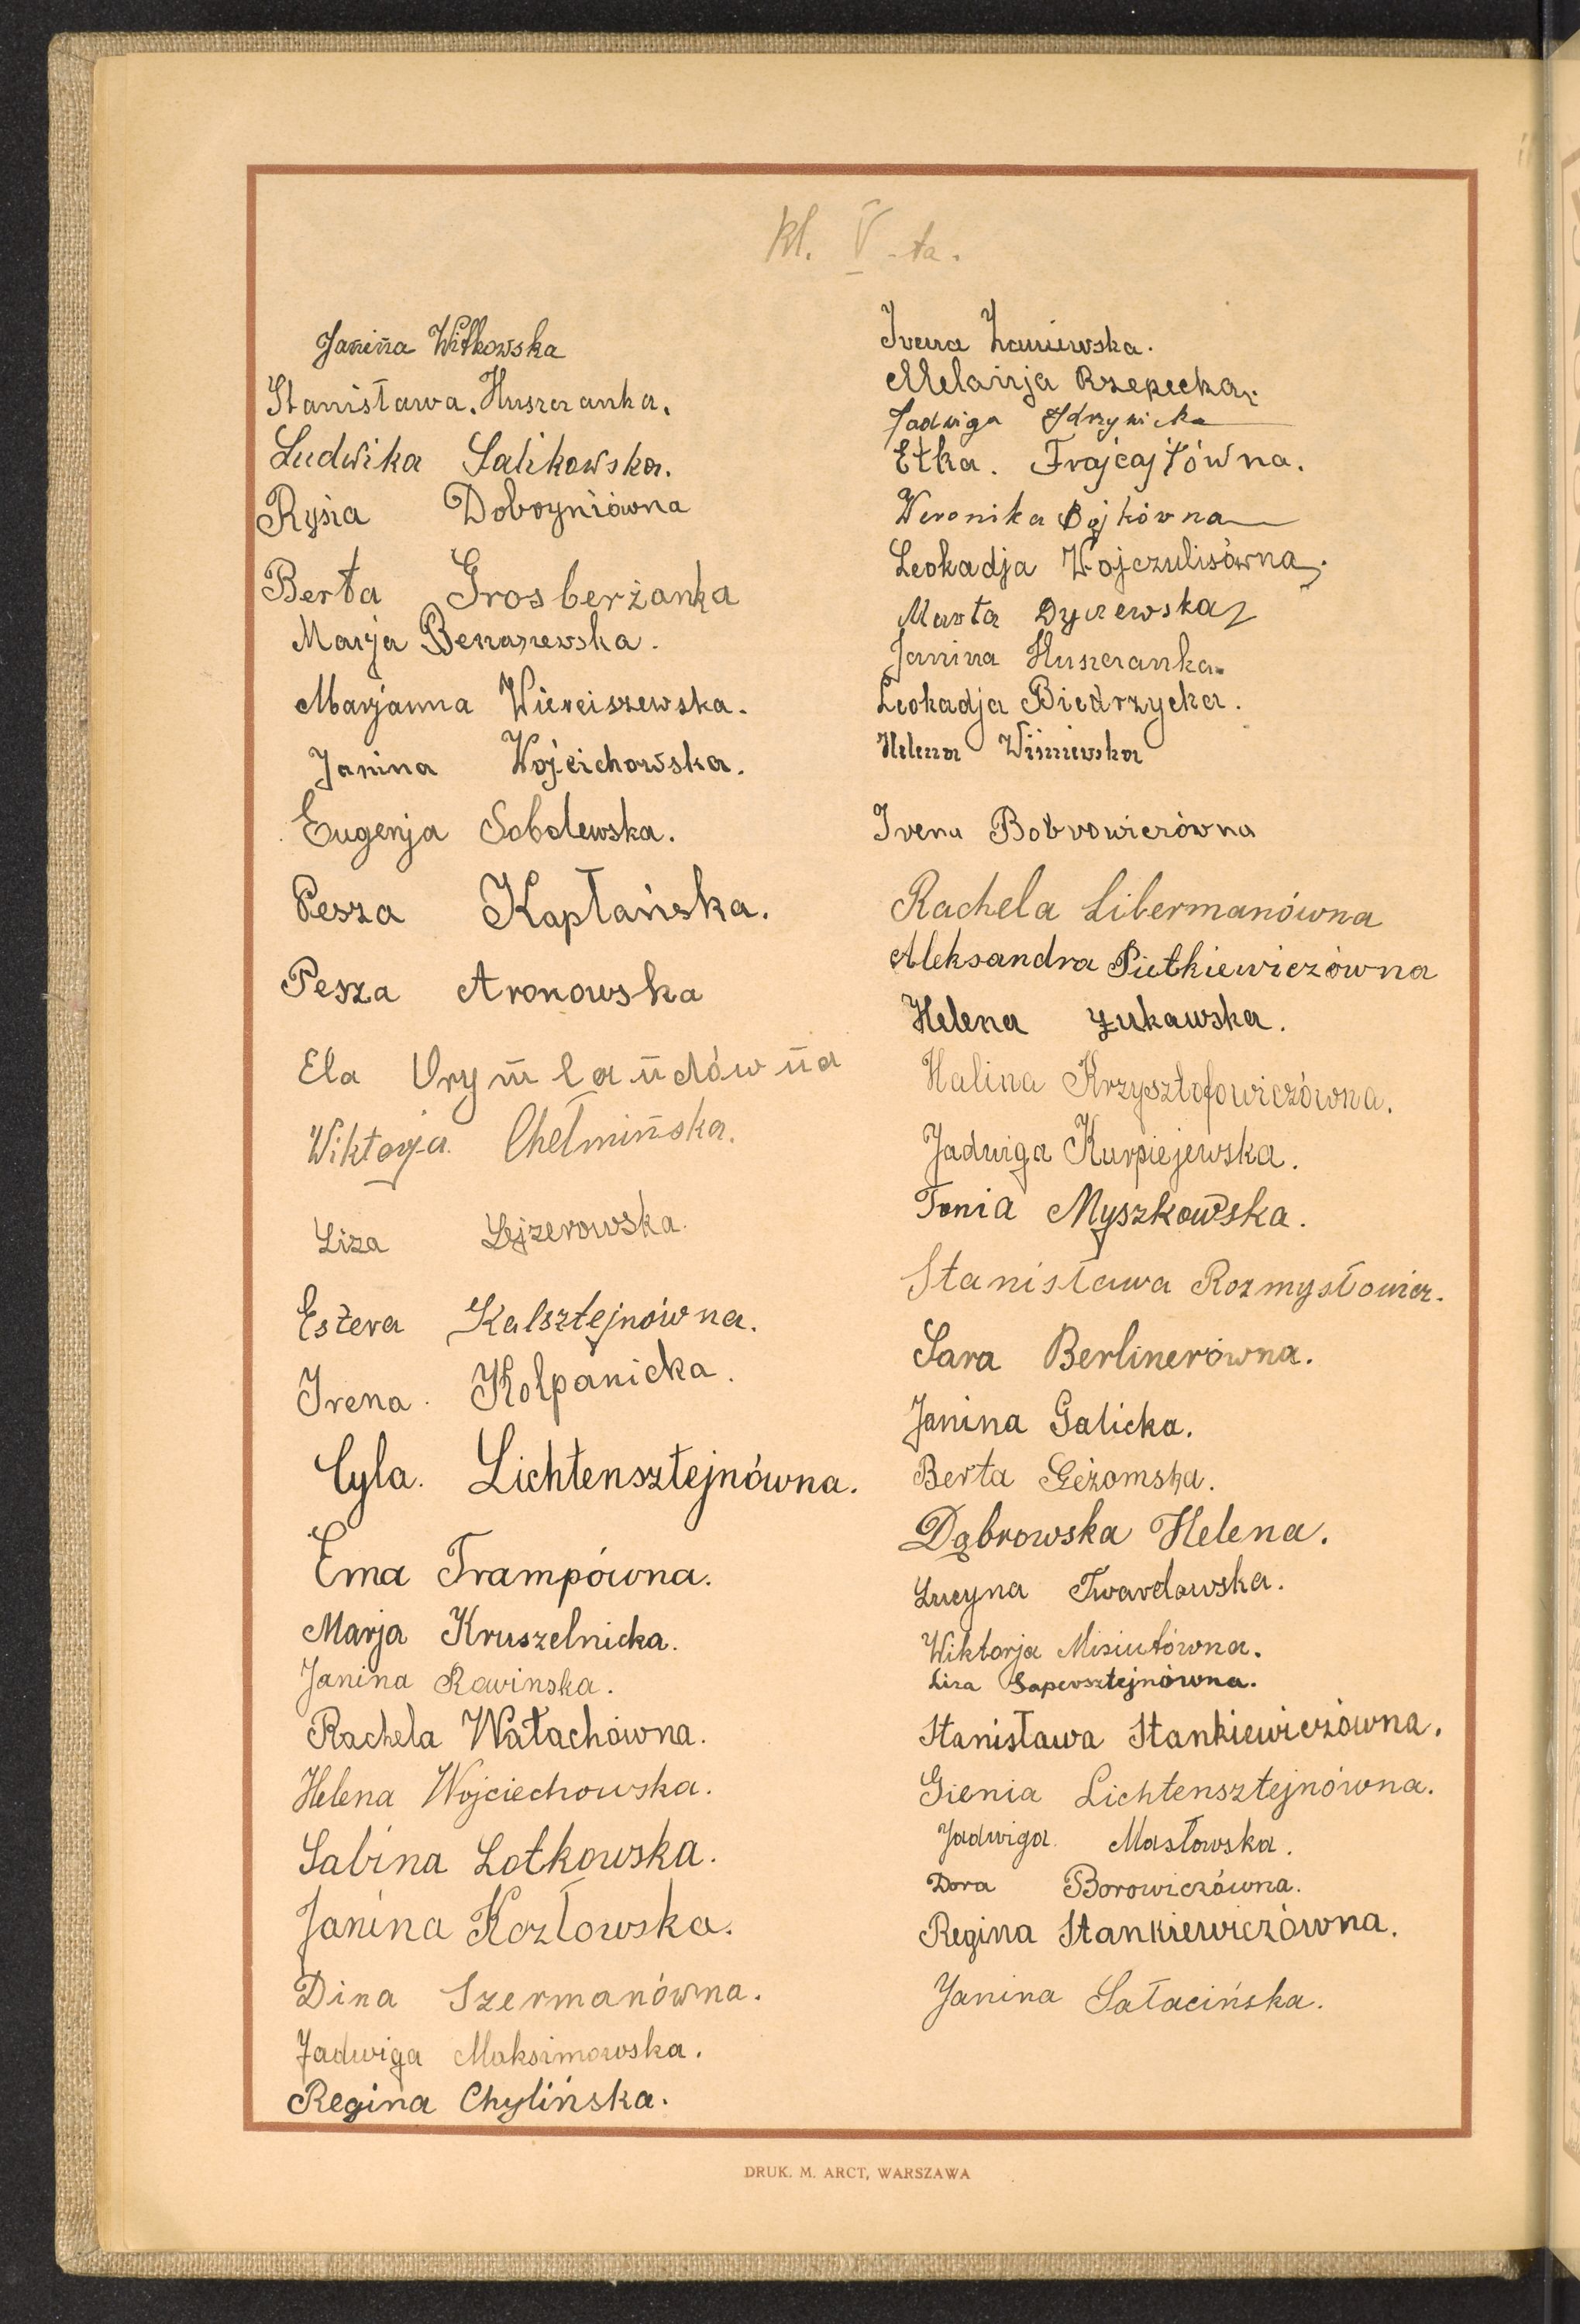 kl. V-ta.
Janina Witkowska
Stanisława. Huszczanka.
Ludwika Salikowska.
Rysia Dobryniówna
Berta Grosberżanka
Marja Benaszewska.
Marjanna Wierciszewska.
Janina Wojciechowska.
Eugenja Sobolewska.
Pesza Kapłańska.
Pesza Aronowska
Ela Grynlandówna
Wiktorja Chełmińska.
Liza Lejzerowska.
Estera Kalsztejnówna.
Irena Kolpanicka.
Cyla. Lichtensztejnówna.
Ema Trampówna.
Marja Kruszelnicka.
Janina Rawinska.
Rachela Wałachówna.
Helena Wojciechowska.
Sabina Lotkowska.
Janina Kozłowska.
Dina Szermanówna.
Jadwiga Maksimowska.
Regina Chylińska.
Irena Zaniewska.
Melanja Rzepecka.
Jadwiga Idzrywicka
Etka. Frajcajtówna.
Weronika Bójkówna
Leokadja Wojczulisówna.
Marta Dyczewska
Janina Huszczanka.
Leokadja Biedrzycka.
Helena Wiśniewska
Irena Bobrowiczówna
Rachela Libermanówna
Aleksandra Pietkiewiczówna
Helena Żukawska.
Halina Krzysztofowiczówna.
Jadwiga Kurpiejewska.
Tonia Myszkowska.
Stanisława Rozmysłowicz.
Sara Berlinerówna.
Janina Galicka.
Berta Gieżomska.
Dąbrowska Helena.
Lucyna Twardowska.
Wiktorja Misiutówna.
Liza Sapersztejnówna.
Stanisława Stankiewiczówna.
Gienia Lichtensztejnówna.
Jadwiga Masłowska.
Dora Borowiczówna.
Regina Stankiewiczówna.
Janina Sałacińska.
DRUK. M. ARCT, WARSZAWA